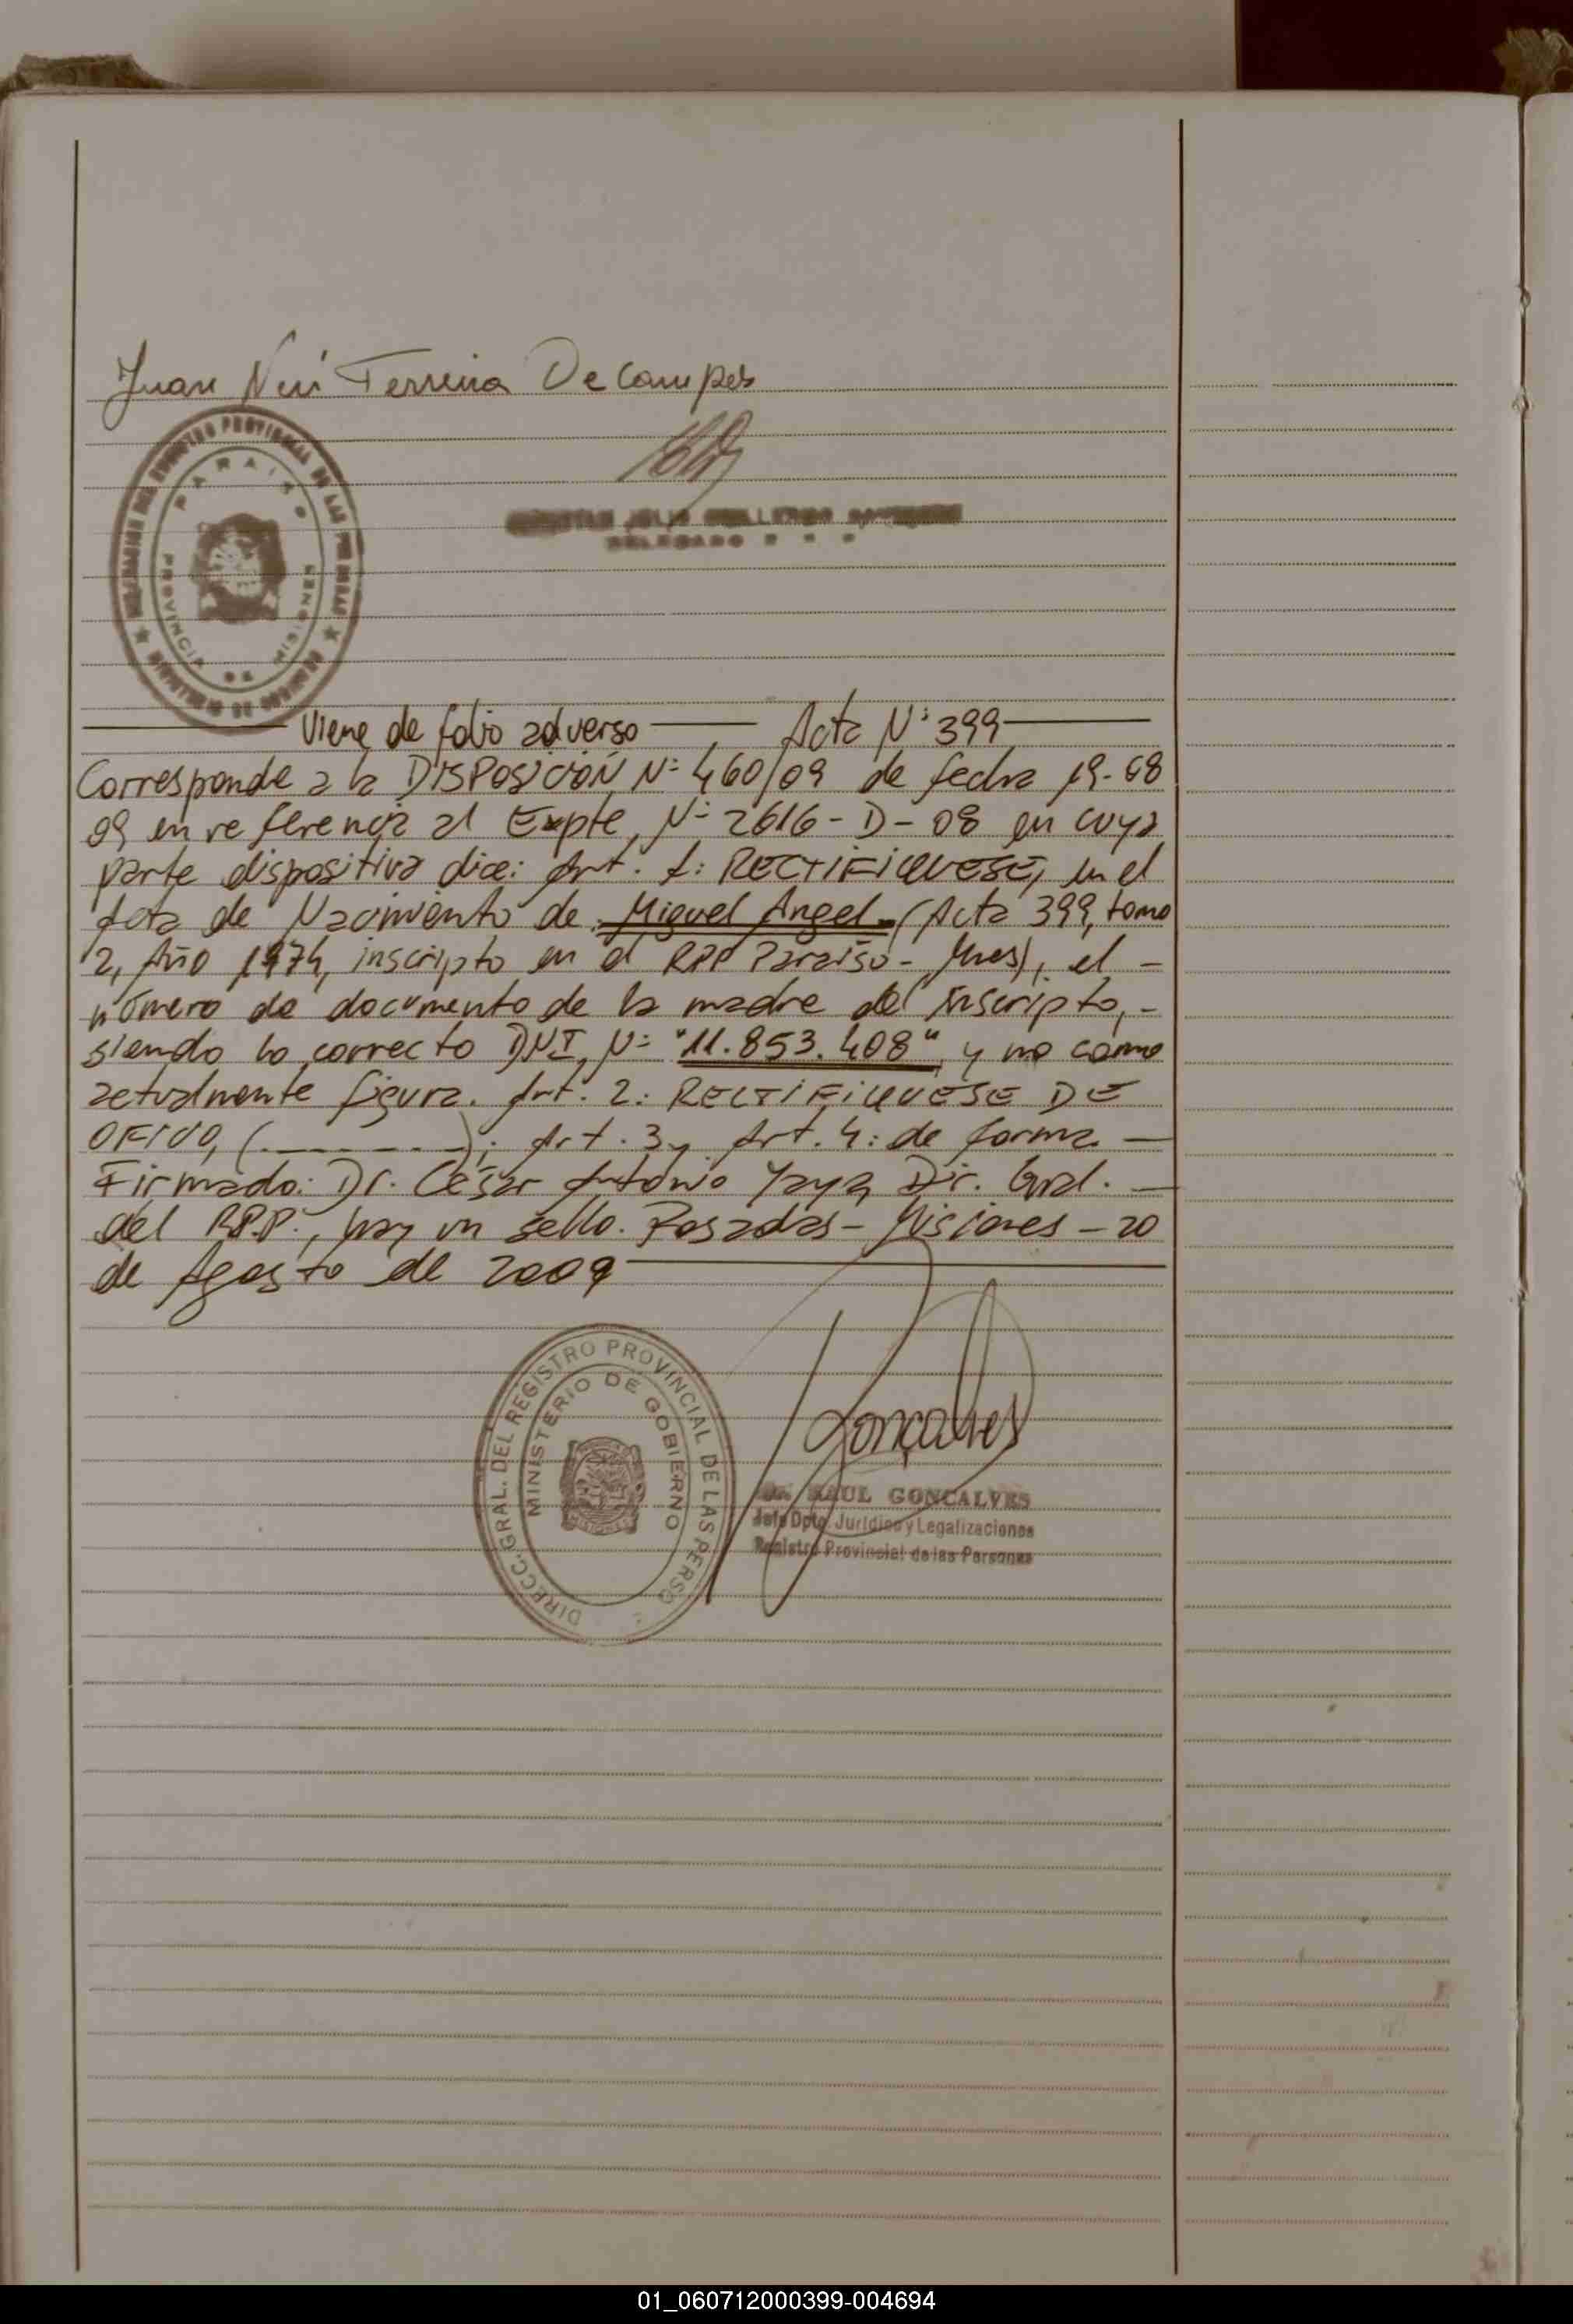 Juan Neri Ferreira De Campos
PARAISO
PROVINCIA DE MISIONES
Viene de folio adverso — Acta N° 399
Corresponde a la DISPOSICIÓN N° 460/09 de fecha 19-08
09 en referencia al Expte, N° 2616-D-08 en cuya
parte dispositiva dice: Art. 1: RECTIFIQUESE, en el
Acta de Nacimiento de Miguel Angel (Acta 399, tomo
2, Año 1974, inscripto en el RPP Paraiso - Mnes), el -
número de documento de la madre del inscripto, -
siendo lo correcto DNI, N° "11.853.408" y no como
actualmente figura. Art. 2: RECTIFIQUESE DE
OFICIO, (.-------); Art. 3 y Art. 4: de forma —
Firmado: Dr. César Antonio Yaya, Dir. Gral. —
del R.P.P., hay un sello. Posadas - Misiones - 20
de Agosto de 2009
DIRECC. GRAL. DEL REGISTRO PROVINCIAL DE LAS PERSO
MINISTERIO DE GOBIERNO
MISIONES
Goncalves
RAUL GONCALVES
Jefe Dpto. Jurídico y Legalizaciones
Registro Provincial de las Personas
01_060712000399-004694